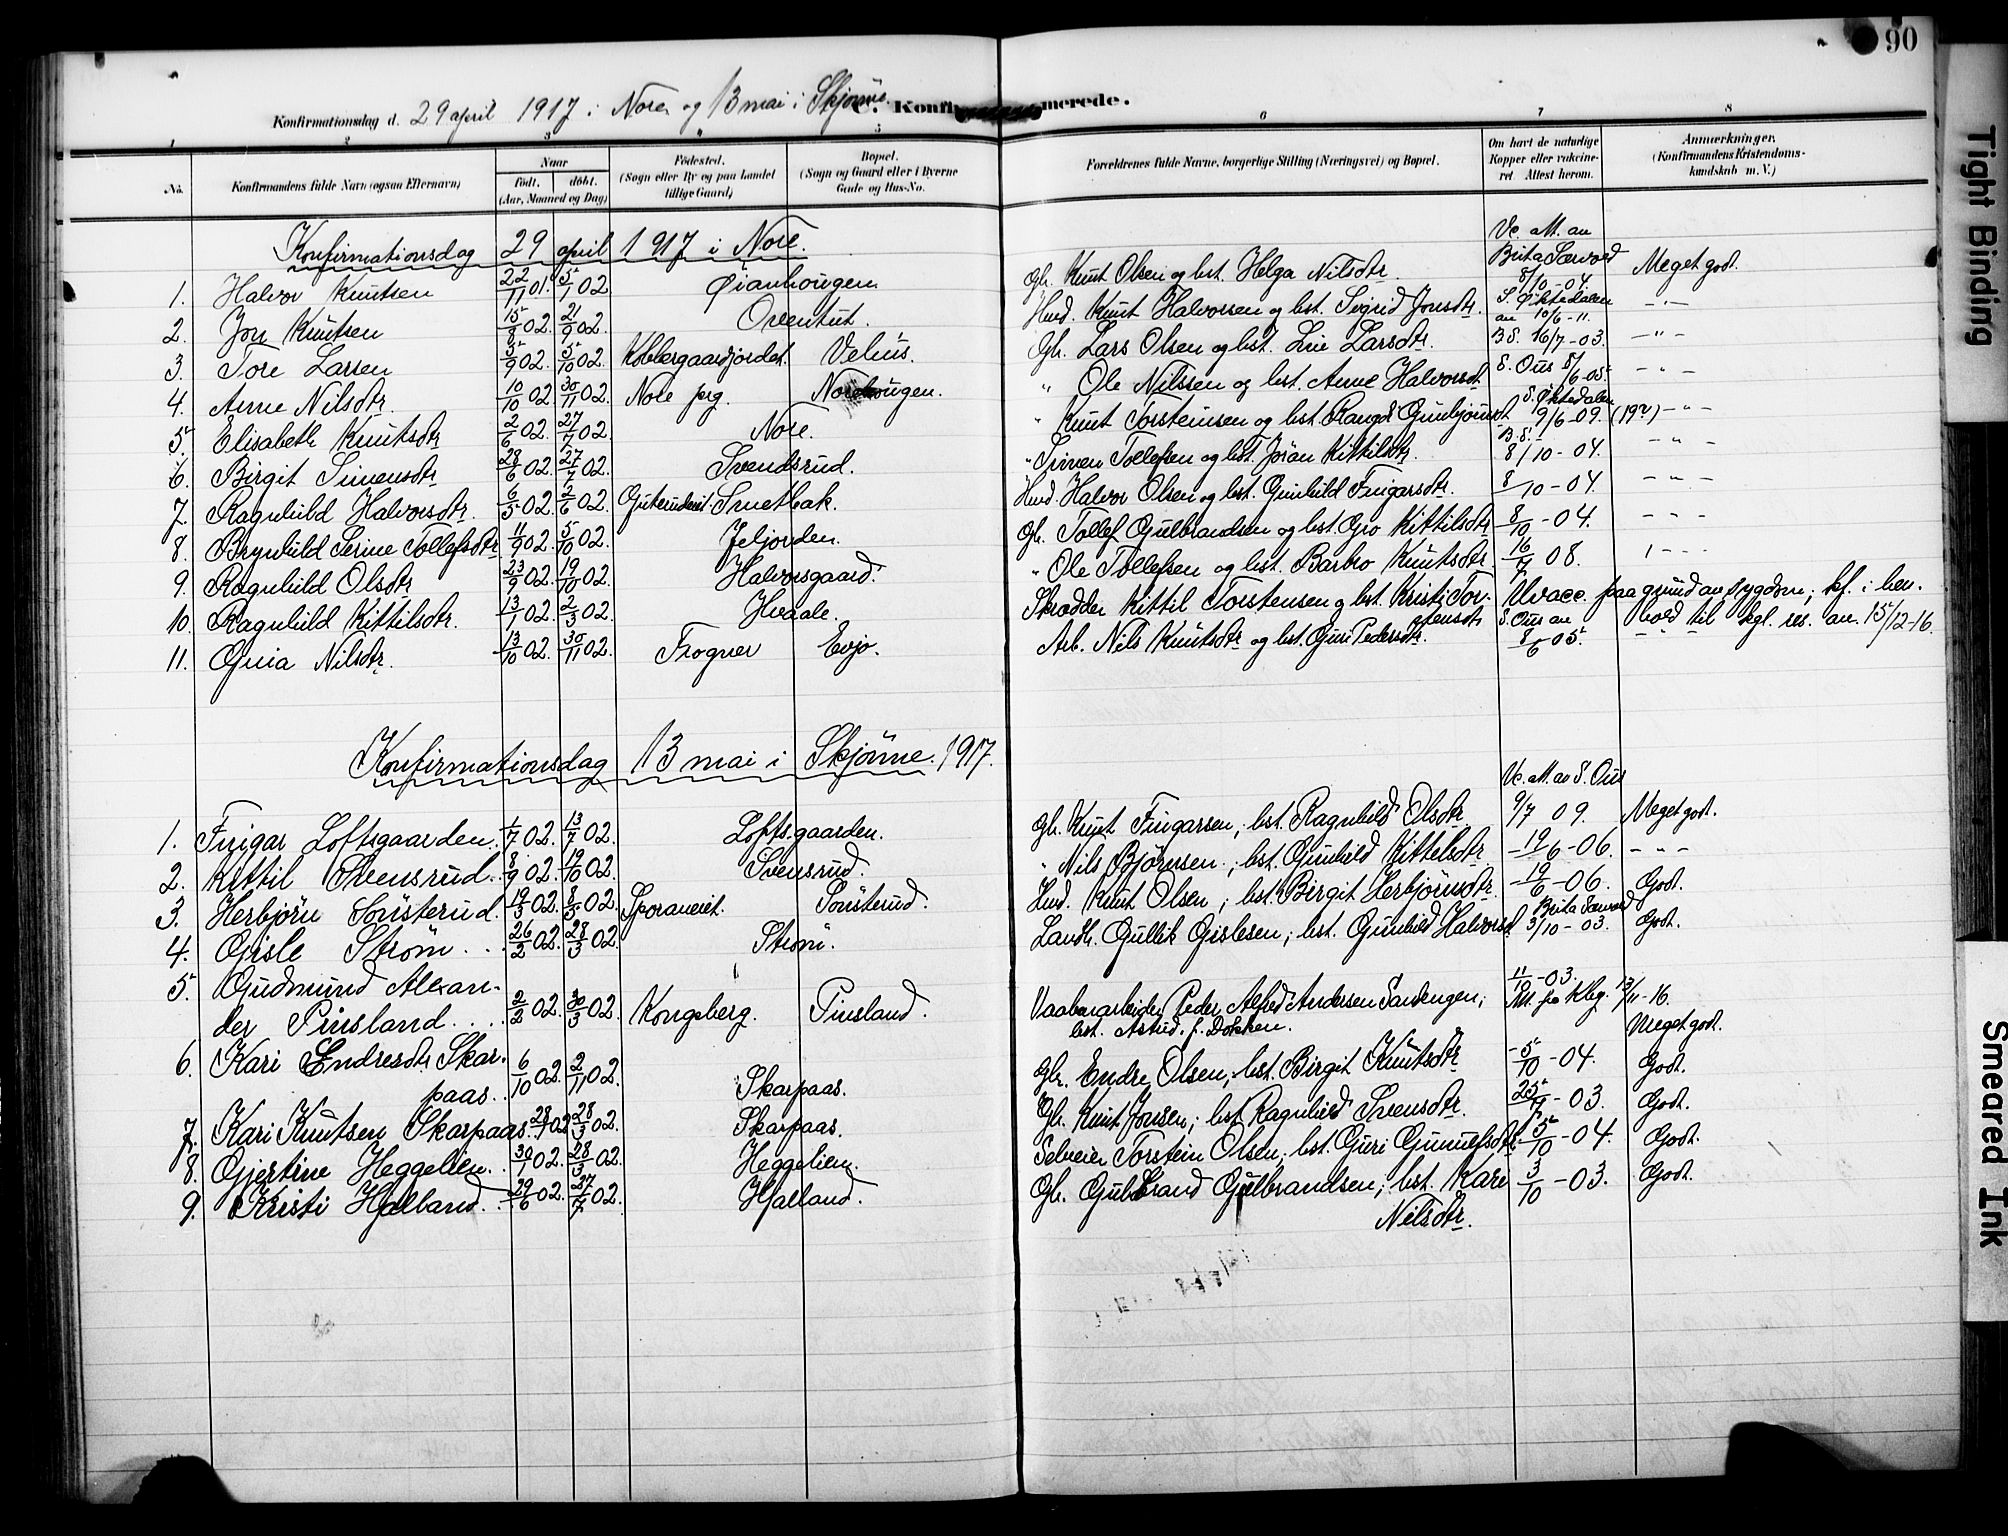 90
Konfirmationsdag d. 29 april 1917 i Nore og 13 mai i Skjønne. C. Konfirmerede.
1 2 3 4 5 6 7 8
No. Konfirmandens fulde Navn (ogsaa Efternavn) Naar født. døbt. (Aar, Maaned og Dag) Fødested. (Sogn eller By og paa Landet tillige Gaard) Bopæl. (Sogn og Gaard eller i Byerne Gade og Hus-No. Forældrenes fulde Navne, borgerlige Stilling (Næringsvei) og Bopæl. Om havt de naturlige Kopper eller vaccineret. Attest herom. Anmærkninger. (Konfirmandens Kristendomskundskab m. V.)
Konfirmationsdag 29 april 1917 i Nore. Vc. att. av
1. Halvor Knutsen 22/11 01. 5/1 02 Øianhougen. Gb. Knut Olsen og hst. Helga Nilsdtr. Brita Sævord 8/10-04. Meget godt.
2. Jon Knutsen 15/8 02. 21/9 02. Oventut. Husmd. Knut Halvorsen og hst. Sigrid Jonsdtr. S. Øktedalen av 10/6-11. -"-
3. Tore Larsen 5/9 02. 5/10 02. Kobbergaardjordet. Velhus. Gb. Lars Olsen og hst. Live Larsdtr. B.S. 16/7-03. -"-
4. Anne Nilsdtr. 10/10 02. 30/11 02. Nore prg. Norehougen. " Ole Nilssen og hst. Anne Halvorsdt. S. Ous 8/6-05. -"-
5. Elisabeth Knutsdtr 2/6 02. 27/7 02. Nore. " Knut Torsteinsen og hst. Rangdi Gunbjørnsdt. S. Øktedalen 9/6-09. (19?) -"-
6. Birgit Simensdtr 28/6 02. 27/7 02. Svendsrud. " Simen Tollefsen og hst. Jøran Kittilsdtr. B.S. 8/10-04. -"-
7. Ragnhild Halvorsdtr. 6/5 02. 2/6 02. Smetbak. Husmd. Halvor Olsen og hst. Gunhild Fingarsdtr. 8/10-04. -"-
8. Brynhild Serine Tollefsdtr 11/9 02. 5/10 02. Jeljorden. Gb. Tollef Gulbrandsen og hst. Gro Kittilsdtr 8/10-04. -"-
9. Ragnhild Olsdtr 23/9 02. 19/10 02. Halvorsgaard. " Ole Tollefsen og hst. Barbro Knutsdtr. 16/7 08. -"-
10. Ragnhild Kittilsdtr. 13/1 02. 2/3 02. Hvaale. Skrædder Kittil Torstensen og hst. Kristi Torstensdtr Uvacc. paa grund av sygdom; kf. i henhold til kgl. res. av 15/12-16.
11. Guia Nilsdtr. 13/10 02. 30/11 02. Frogner Evjo. Arb. Nils Knutsdtr og hst. Guri Pedersdtr. S. Ous av 8/6 05. -"-
Konfirmationsdag 13 mai i Skjønne. 1917. Vc. att. av S. Ous
1. Fingar Loftsgaarden. 1/7 02. 13/7 02. Loftsgaarden. Gb. Knut Fingarsen; hst. Ragnhild Olsdtr. 9/7 09. Meget godt.
2. Kittil Svensrud. 8/9 02. 19/10 02. Svensrud. " Nils Bjørnsen; hst. Gunhild Kittilsdtr 19/6-06. -"-
3. Herbjørn Sønsterud. 19/3 02. 8/5 02. Sporaneiet. Sønsterud. Husmd. Knut Olsen; hst. Birgit Herbjørnsdtr. 19/6-06. Godt.
4. Gisle Strøm. 26/2 02. 28/3 02. Strøm. Landh. Gullik Gislesen; hst. Gunhild Halvorsd. Brita Sævord 3/10-03. Godt.
5. Gudmund Alexan- 11/10-03.
der Pinsland. 2/2 02. 30/3 02. Kongsberg. Pinsland. Vaabenarbeider Peder Alfred Andersen Sandengen; Att. fra Kbg. 12/11-16.
hst. Astrid f. Dokken. Meget godt.
6. Kari Endresdtr Skar-
paas. 6/10 02. 2/11 02. Skarpaas. Gb. Endre Olsen; hst. Birgit Knutsdtr 5/10-04. Godt.
7. Kari Knutsen Skarpaas. 28/1 02. 28/3 02. Skarpaas. Gb. Knut Jonsen; hst. Ragnhild Svensdtr. 25/9-03. Godt.
8. Gjertine Heggelien. 30/1 02. 28/3 02. Heggelien. Selveier Torstein Olsen; hst. Guri Gunulfsdtr. 5/10-04. Godt.
9. Kristi Hjalland. 29/6 02. 27/7 02. Hjalland. Gb. Gulbrand Gulbrandsen; hst. Kari 3/10-03. Godt.
Nilsdtr.
Tight Binding
Smeared Ink